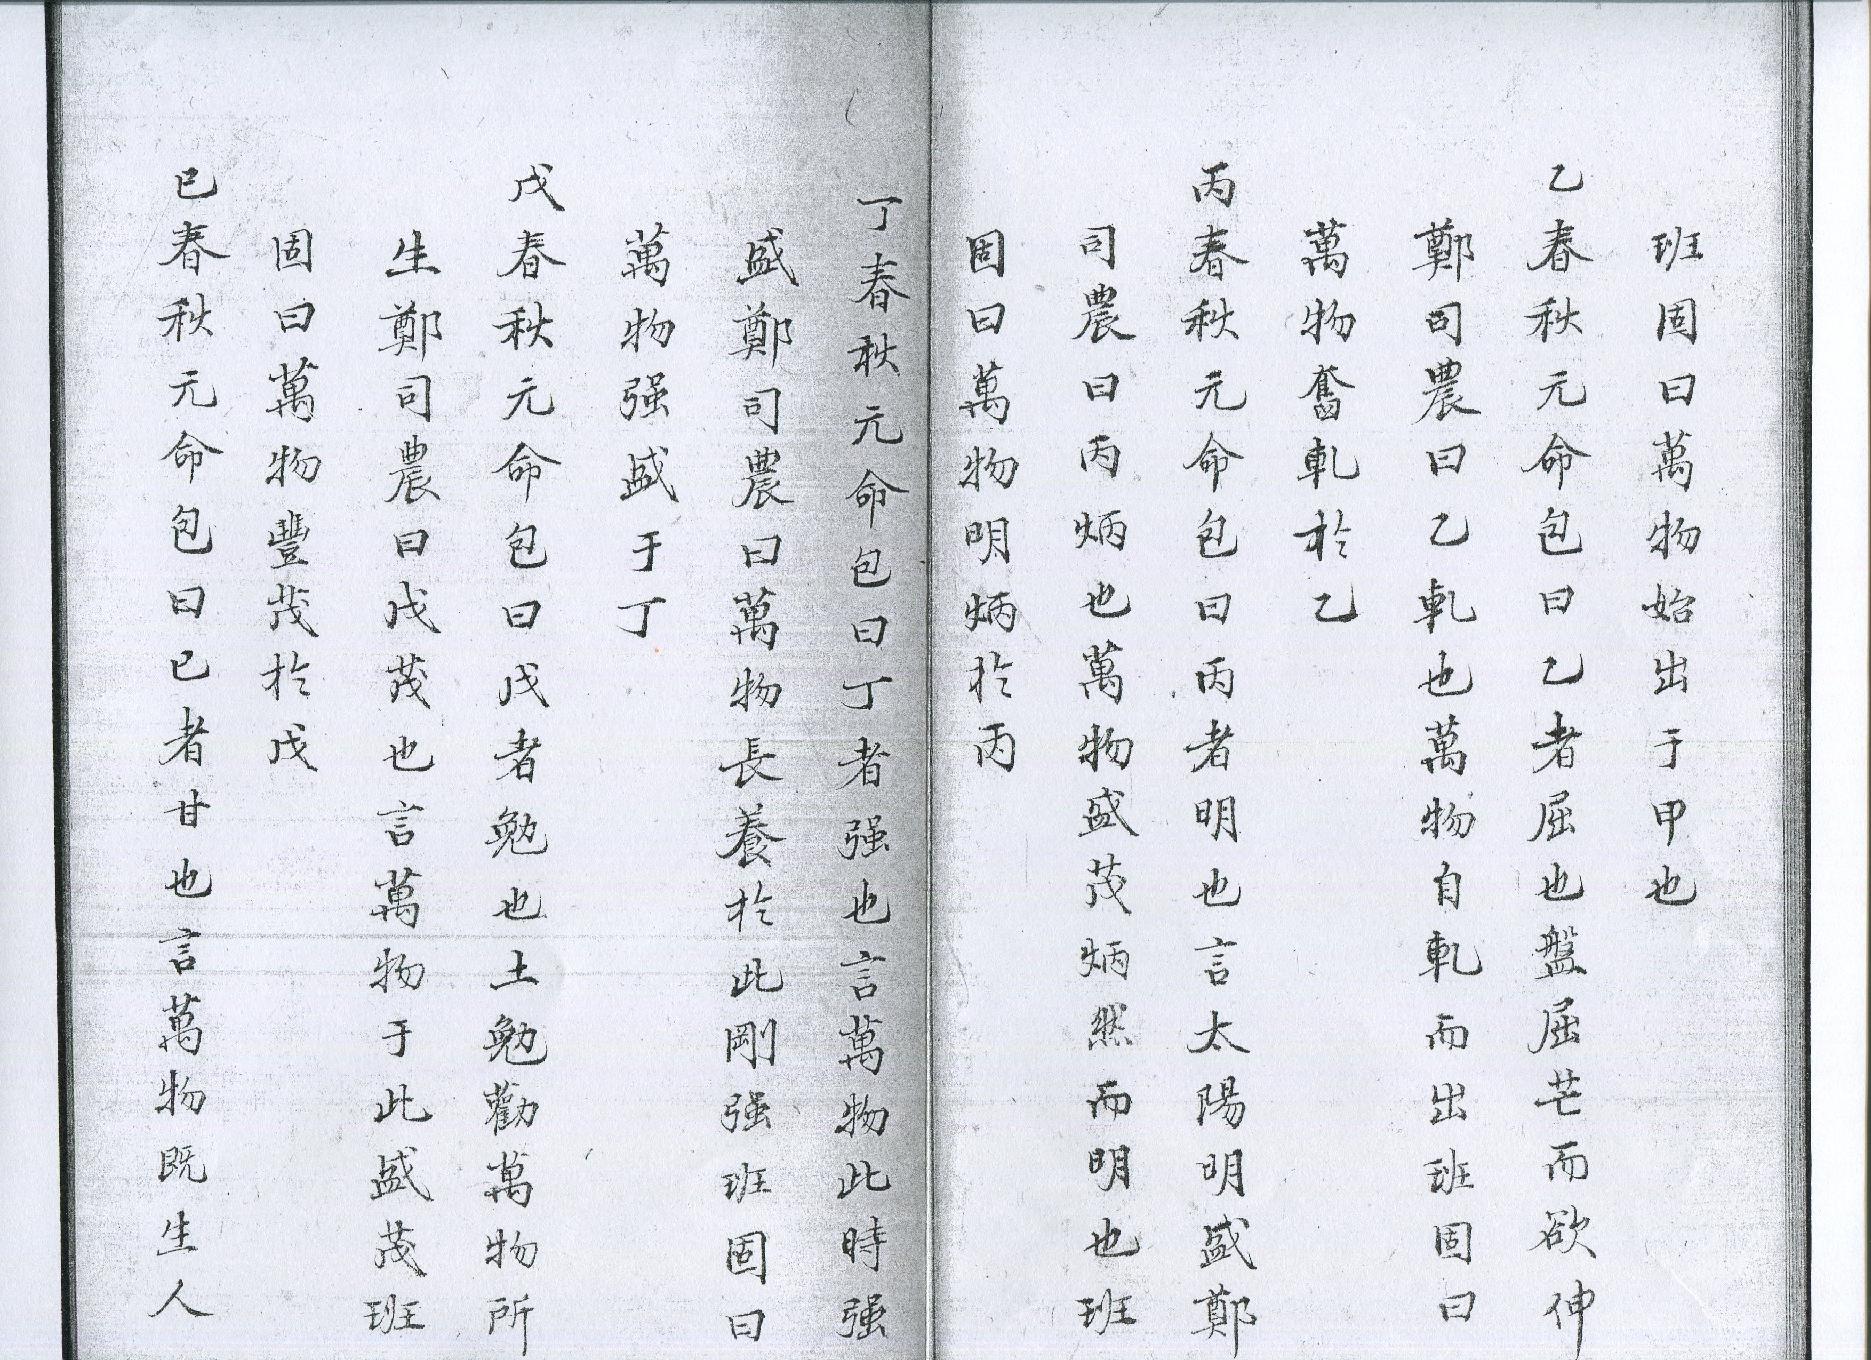 班固曰萬物始出于甲也
乙春秋元命包曰乙者屈也盤屈芒而欲伸
鄭司農曰乙軋也萬物自軋而出班固曰
萬物奮軋於乙
丙春秋元命包曰丙者明也言太陽明盛鄭
司農曰丙炳也萬物盛茂炳然而明也班
固曰萬物明炳於丙
丁春秋元命包曰丁者强也言萬物此時强
盛鄭司農曰萬物長養於此剛强班固曰
萬物强盛于丁
戊春秋元命包曰戊者勉也土勉勸萬物所
生鄭司農曰戊茂也言萬物于此盛茂班
固曰萬物豐茂於戊
已春秋元命包曰已者甘也言萬物既生人